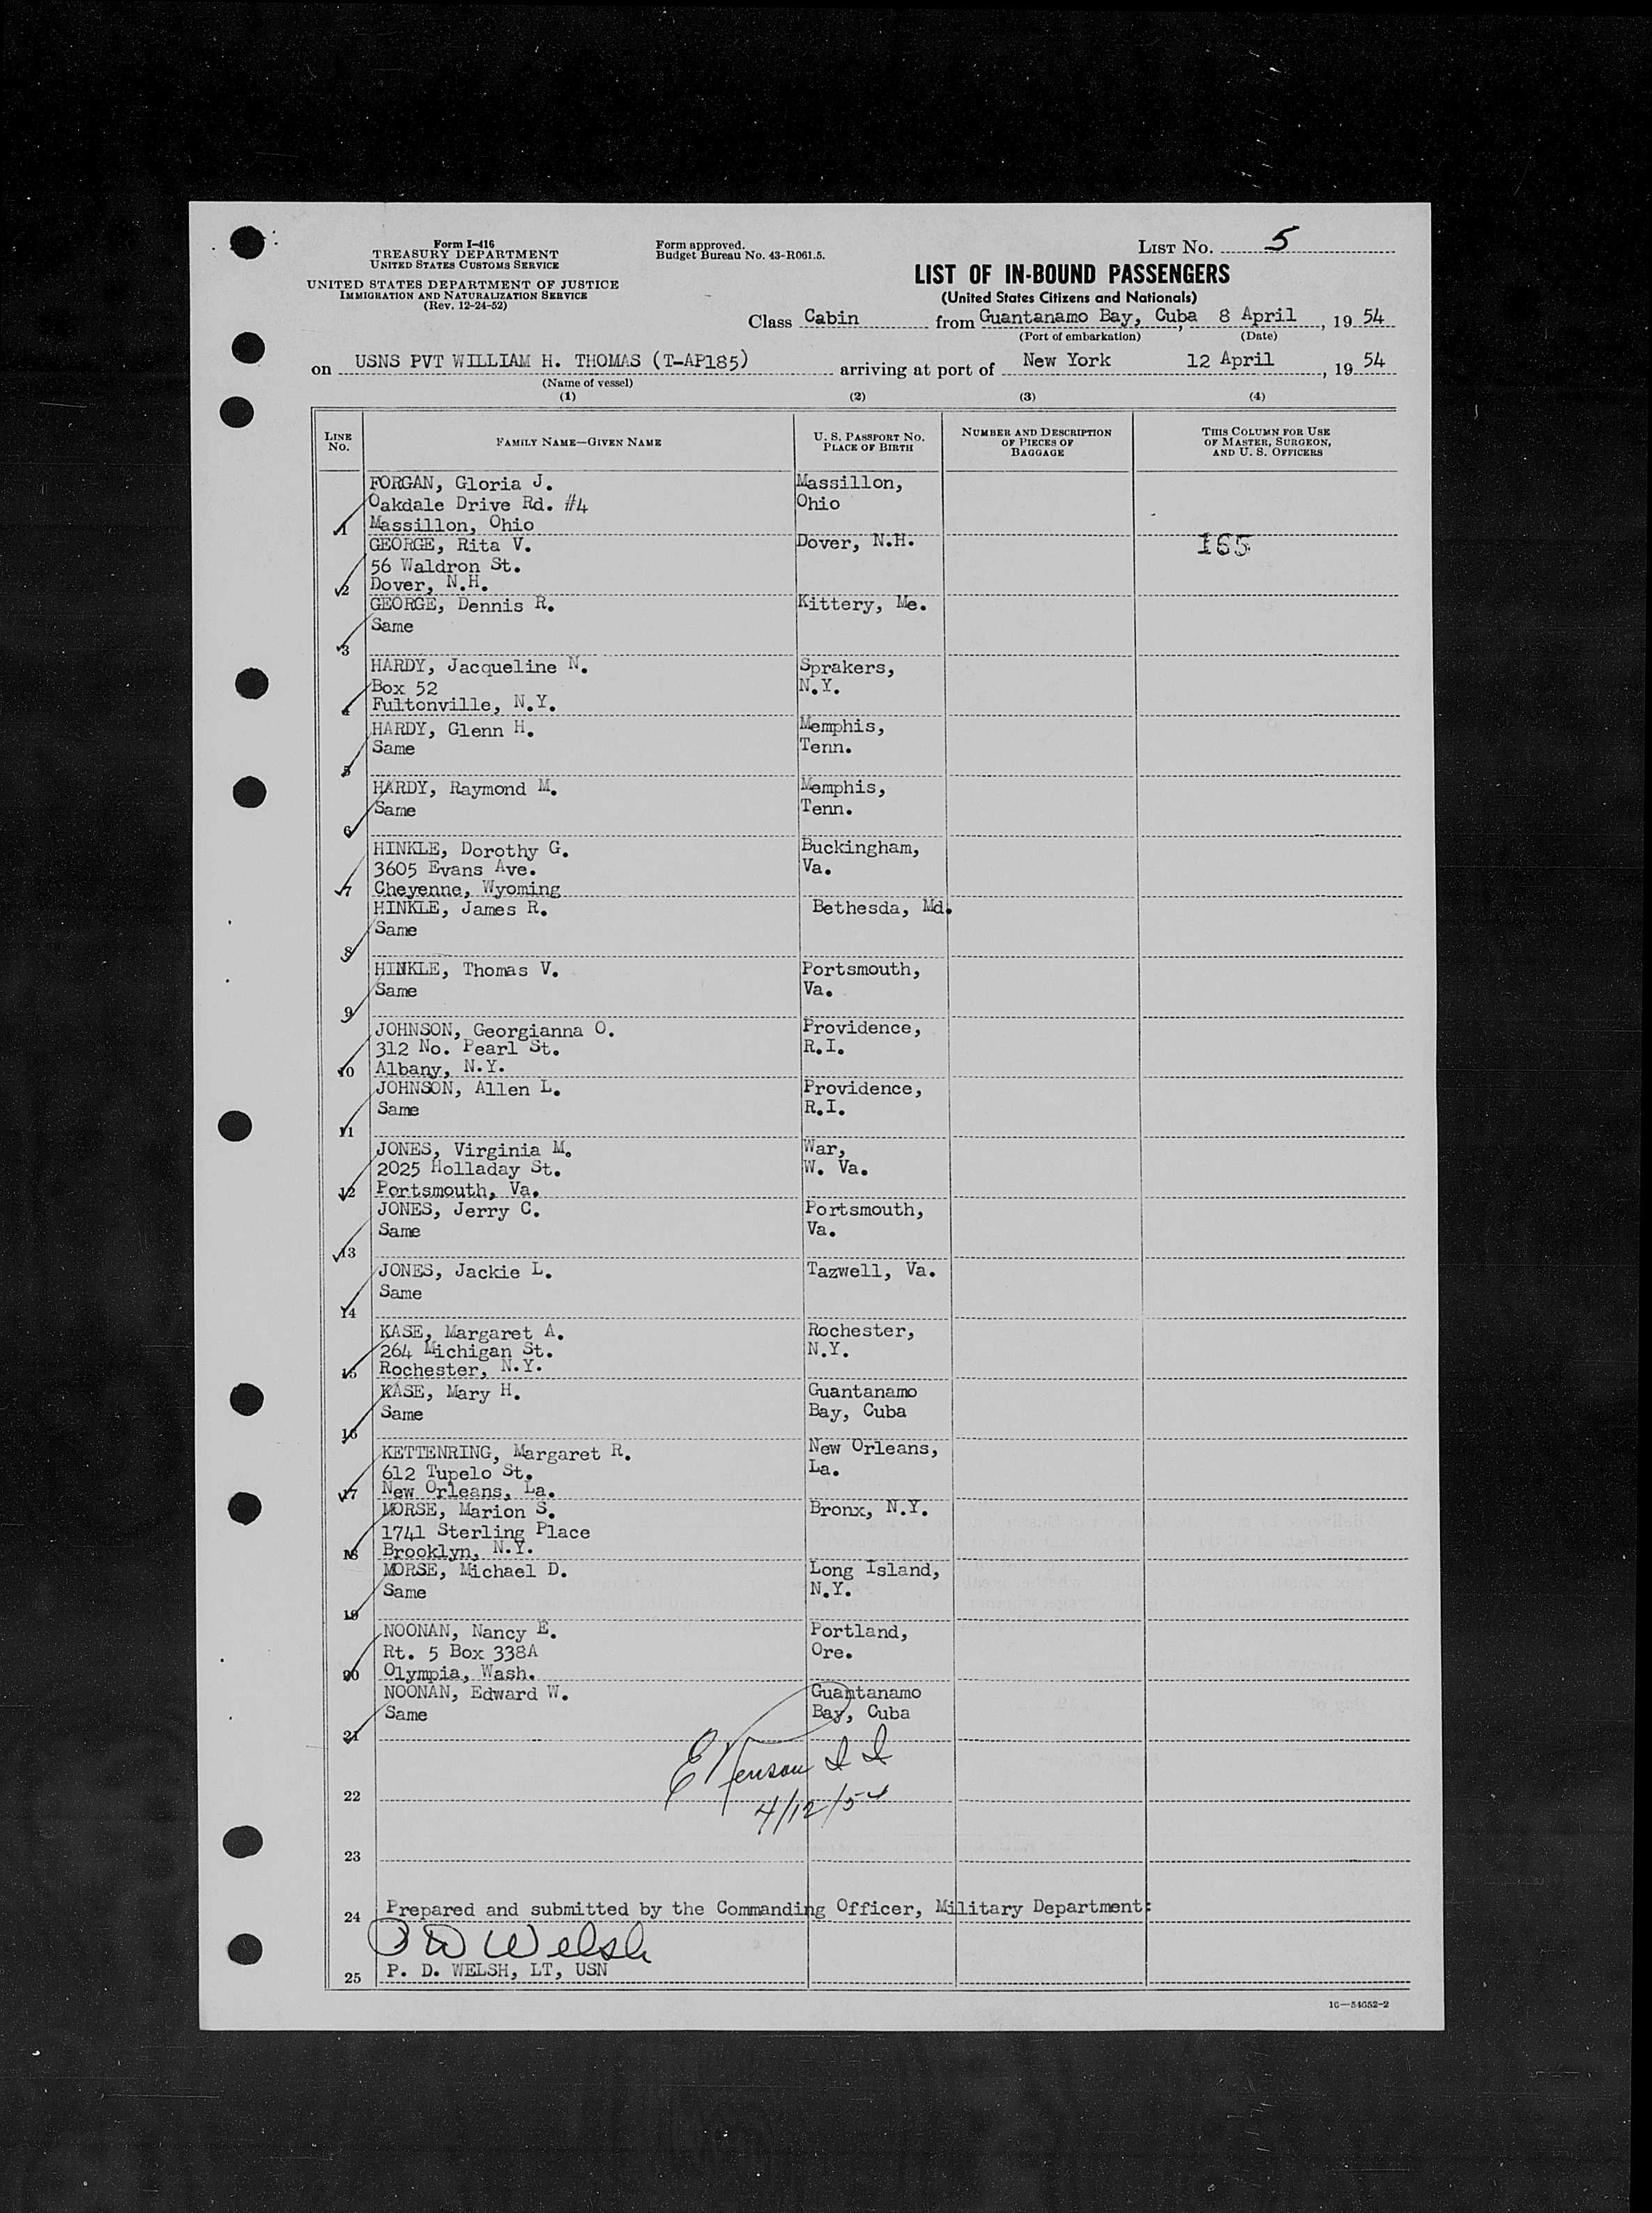 Form I-416
TREASURY DEPARTMENT
UNITED STATES CUSTOMS SERVICE
UNITED STATES DEPARTMENT OF JUSTICE
IMMIGRATION AND NATURALIZATION SERVICE
(Rev. 12-24-52)
Form approved.
Budget Bureau No. 43-R061.5.
LIST NO. 5
LIST OF IN-BOUND PASSENGERS
(United States Citizens and Nationals)
Class Cabin from Guantanamo Bay, Cuba, 8 April, 19 54
(Port of embarkation) (Date)
on USNS PVT WILLIAM H. THOMAS (T-AP185) arriving at port of New York 12 April, 19 54
(Name of vessel)
(1) (2) (3) (4)
LINE NO. FAMILY NAME—GIVEN NAME U. S. PASSPORT NO. PLACE OF BIRTH NUMBER AND DESCRIPTION OF PIECES OF BAGGAGE THIS COLUMN FOR USE OF MASTER, SURGEON, AND U. S. OFFICERS
FORGAN, Gloria J. Massillon,
Oakdale Drive Rd. #4 Ohio
1 Massillon, Ohio
GEORGE, Rita V. Dover, N.H. 165
56 Waldron St.
2 Dover, N.H.
GEORGE, Dennis R. Kittery, Me.
Same
3
HARDY, Jacqueline N. Sprakers,
Box 52 N.Y.
4 Fultonville, N.Y.
HARDY, Glenn H. Memphis,
Same Tenn.
5
HARDY, Raymond M. Memphis,
Same Tenn.
6
HINKLE, Dorothy G. Buckingham,
3605 Evans Ave. Va.
7 Cheyenne, Wyoming
HINKLE, James R. Bethesda, Md.
Same
8
HINKLE, Thomas V. Portsmouth,
Same Va.
9
JOHNSON, Georgianna O. Providence,
312 No. Pearl St. R.I.
10 Albany, N.Y.
JOHNSON, Allen L. Providence,
Same R.I.
11
JONES, Virginia M. War,
2025 Holladay St. W. Va.
12 Portsmouth, Va.
JONES, Jerry C. Portsmouth,
Same Va.
13
JONES, Jackie L. Tazwell, Va.
Same
14
KASE, Margaret A. Rochester,
264 Michigan St. N.Y.
15 Rochester, N.Y.
KASE, Mary H. Guantanamo
Same Bay, Cuba
16
KETTENRING, Margaret R. New Orleans,
612 Tupelo St. La.
17 New Orleans, La.
MORSE, Marion S. Bronx, N.Y.
1741 Sterling Place
18 Brooklyn, N.Y.
MORSE, Michael D. Long Island,
Same N.Y.
19
NOONAN, Nancy E. Portland,
Rt. 5 Box 338A Ore.
20 Olympia, Wash.
NOONAN, Edward W. Guantanamo
Same Bay, Cuba
21
22 4/12/54
23
24 Prepared and submitted by the Commanding Officer, Military Department:
P D Welsh
25 P. D. WELSH, LT, USN
16—54652-2